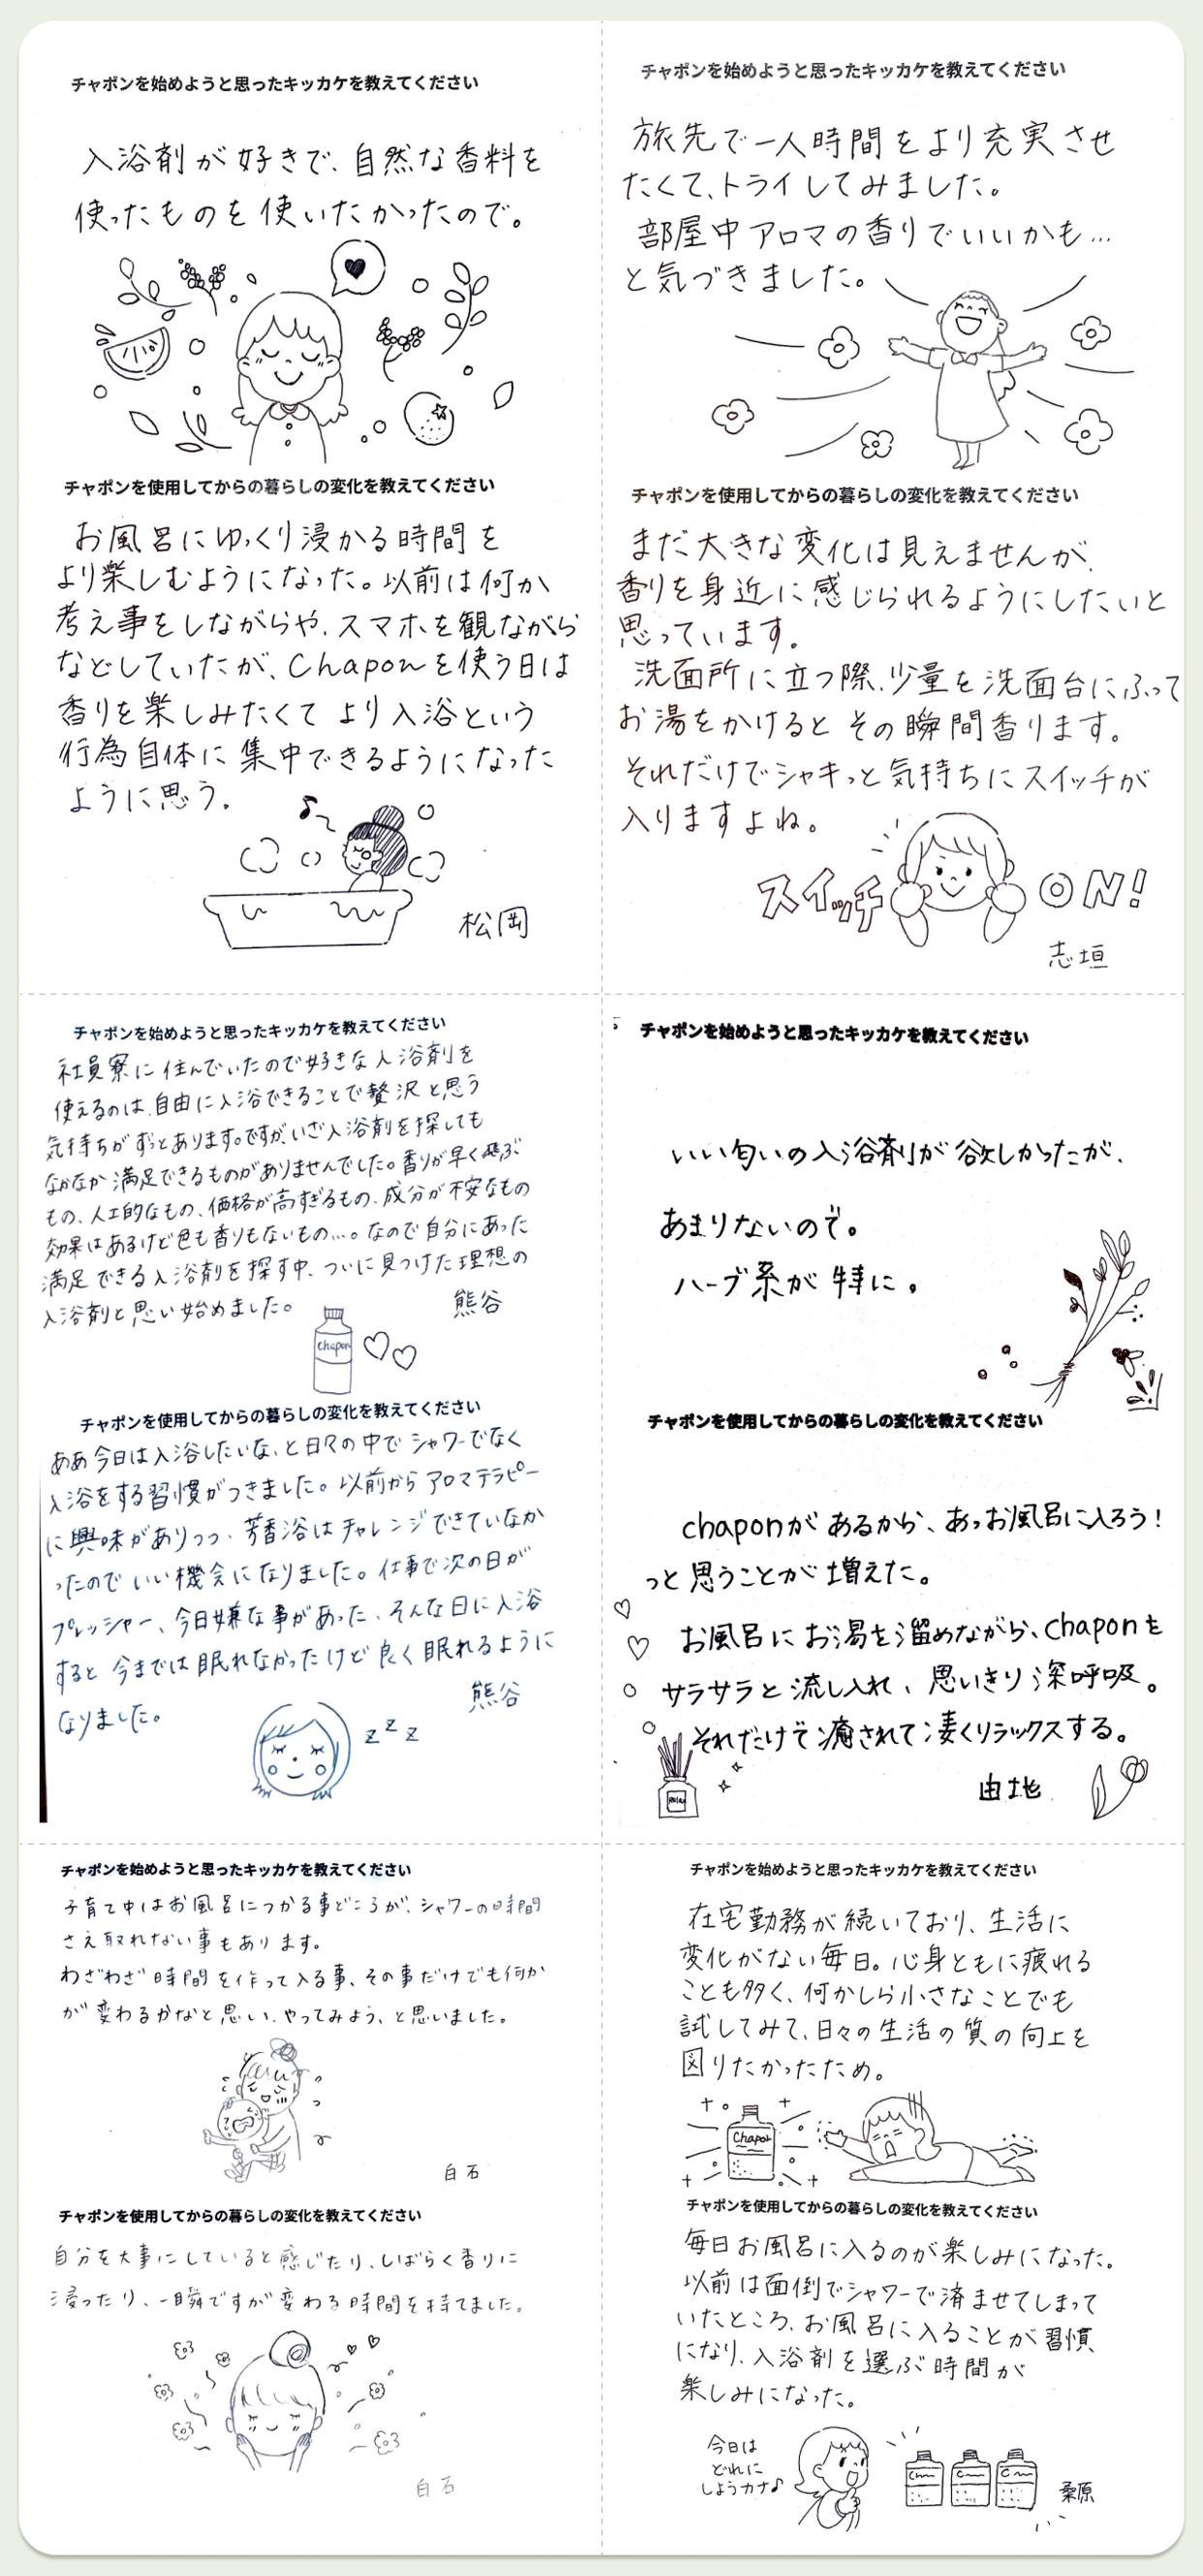 チャポンを始めようと思ったキッカケを教えてください
入浴剤が好きで、自然な香料を
使ったものを使いたかったので。
チャポンを使用してからの暮らしの変化を教えてください
お風呂にゆっくり浸かる時間を
より楽しむようになった。以前は何か
考え事をしながらや、スマホを観ながら
などしていたが、Chaponを使う日は
香りを楽しみたくて より入浴という
行為自体に集中できるようになった
ように思う。
松岡
チャポンを始めようと思ったキッカケを教えてください
旅先で一人時間をより充実させ
たくて、トライしてみました。
部屋中アロマの香りでいいかも…
と気づきました。
チャポンを使用してからの暮らしの変化を教えてください
まだ大きな変化は見えませんが、
香りを身近に感じられるようにしたいと
思っています。
洗面所に立つ際、少量を洗面台にふって
お湯をかけると その瞬間香ります。
それだけでシャキっと気持ちにスイッチが
入りますよね。
スイッチ ON!
志垣
チャポンを始めようと思ったキッカケを教えてください
社員寮に住んでいたので好きな入浴剤を
使えるのは、自由に入浴できることで贅沢と思う
気持ちがずっとあります。ですが、いざ入浴剤を探しても
なかなか満足できるものがありませんでした。香りが早く飛ぶ
もの、人工的なもの、価格が高すぎるもの、成分が不安なもの
効果はあるけど色も香りもないもの…。なので自分にあった
満足できる入浴剤を探す中、ついに見つけた理想の
入浴剤と思い始めました。
熊谷
Chapon
チャポンを使用してからの暮らしの変化を教えてください
ああ今日は入浴したいな、と日々の中でシャワーでなく
入浴をする習慣がつきました。以前からアロマテラピー
に興味がありつつ、芳香浴はチャレンジできていなか
ったのでいい機会になりました。仕事で次の日が
プレッシャー、今日嫌な事があった、そんな日に入浴
すると今までは眠れなかったけど良く眠れるように
なりました。
熊谷
z z z
チャポンを始めようと思ったキッカケを教えてください
いい匂いの入浴剤が欲しかったが、
あまりないので。
ハーブ系が特に。
チャポンを使用してからの暮らしの変化を教えてください
chaponがあるから、あっお風呂に入ろう!
っと思うことが増えた。
お風呂にお湯を溜めながら、chaponを
サラサラと流し入れ、思いきり深呼吸。
それだけで癒されて凄くリラックスする。
由地
チャポンを始めようと思ったキッカケを教えてください
子育て中はお風呂につかる事どころが、シャワーの時間
さえ取れない事もあります。
わざわざ時間を作って入る事、その事だけでも何か
が変わるかなと思い、やってみよう、と思いました。
白石
チャポンを使用してからの暮らしの変化を教えてください
自分を大事にしていると感じたり、しばらく香りに
浸ったり、一瞬ですが変わる時間を持てました。
白石
チャポンを始めようと思ったキッカケを教えてください
在宅勤務が続いており、生活に
変化がない毎日。心身ともに疲れる
ことも多く、何かしら小さなことでも
試してみて、日々の生活の質の向上を
図りたかったため。
Chapon
チャポンを使用してからの暮らしの変化を教えてください
毎日お風呂に入るのが楽しみになった。
以前は面倒でシャワーで済ませてしまって
いたところ、お風呂に入ることが習慣
になり、入浴剤を選ぶ時間が
楽しみになった。
今日は
どれに
しようカナ♪
桑原